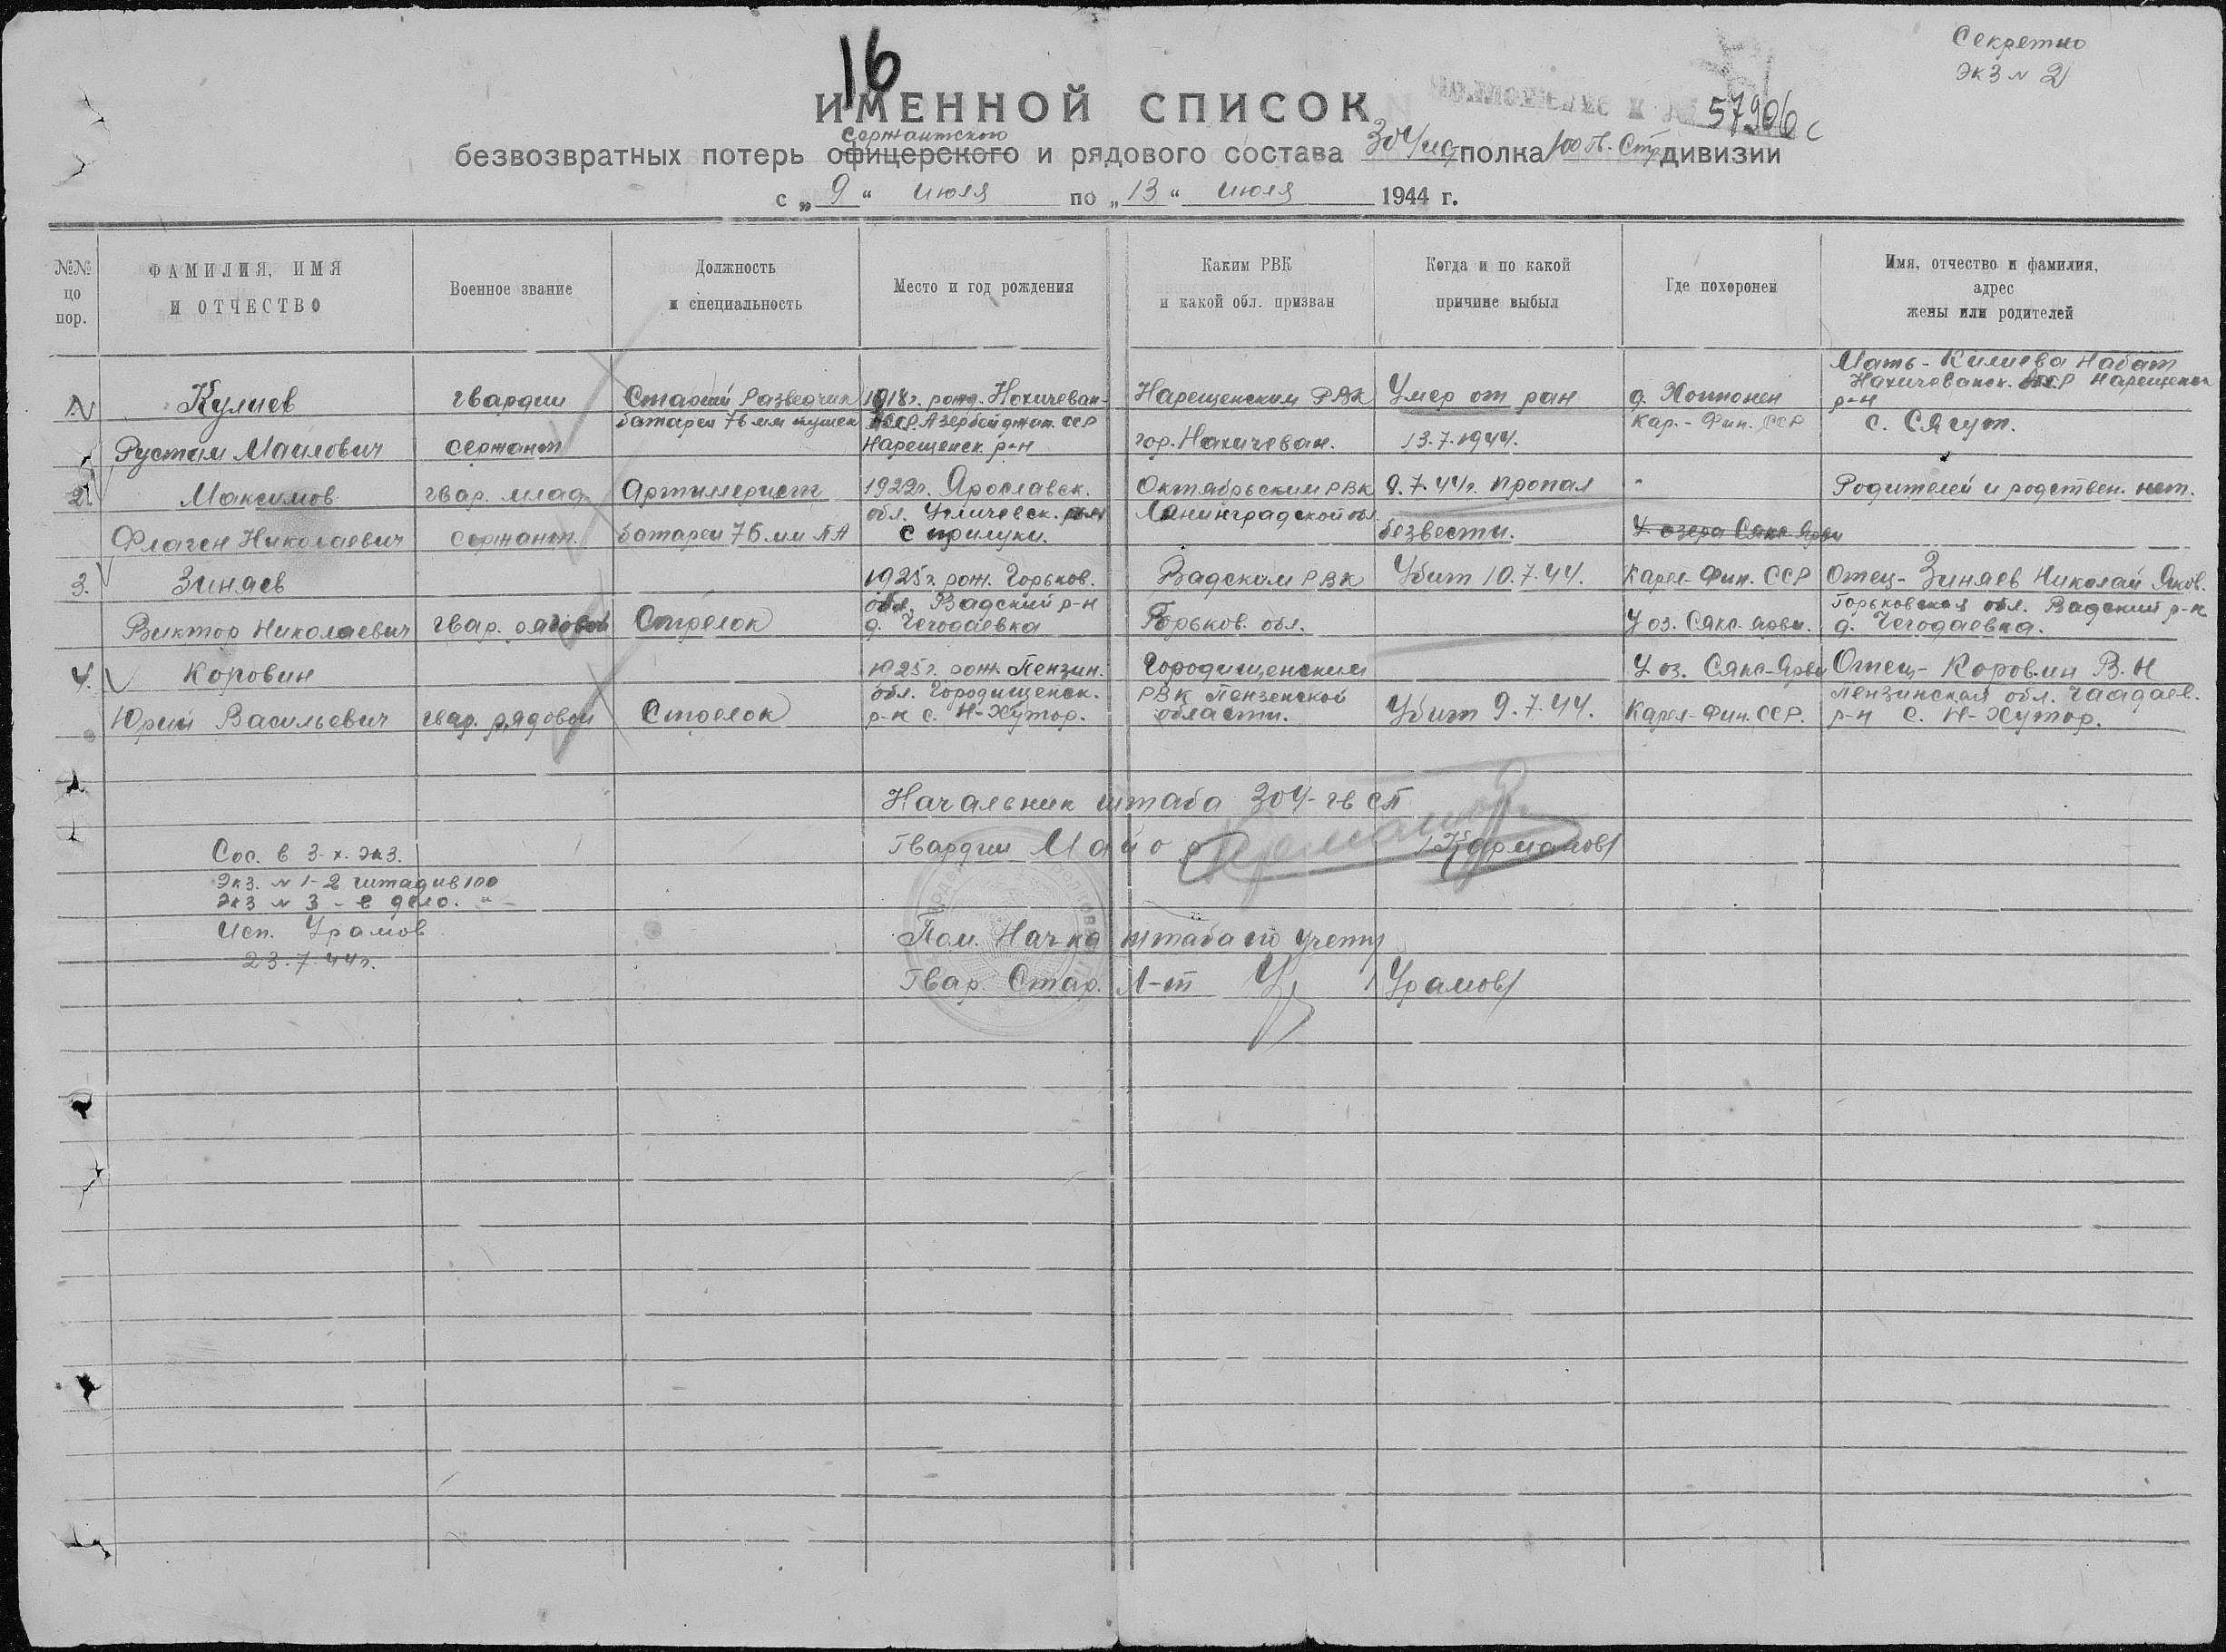 Секретно
Экз № 2
16
ИМЕННОЙ СПИСОК
57906с
сержантского
безвозвратных потерь офицерского и рядового состава 304 полка 100 Гв. Стр. дивизии
с „ 9 “ июля по „ 13 “ июля 1944 г.
№№ по пор.
ФАМИЛИЯ, ИМЯ И ОТЧЕСТВО
Военное звание
Должность и специальность
Место и год рождения
Каким РВК и какой обл. призван
Когда и по какой причине выбыл
Где похоронен
Имя, отчество и фамилия, адрес жены или родителей
1.
Кулиев
Рустам Маилович
гвардии
сержант
Старший Разведчик
батареи 76 мм пушек
1918г. рожд. Нахичеван-
АССР. Азербайджан. ССР
Нарещенск. р-н
Нарещенским РВК
гор. Нахичеван.
Умер от ран
13.7.1944.
д. Хоттонен
Кар.-Фин. ССР
Мать - Кулиева Набат
Нахичеванск. АССР Нарещенск
р-н
с. Сягут.
2.
Максимов
Флаген Николаевич
гвар. млад.
сержант.
Артиллерист
батареи 76 мм ПА
1922г. Ярославск.
обл. Угличевск. р-н
с Прилуки.
Октябрьским РВК
Ленинградской обл.
9.7.44г. пропал
безвести.
-
У озера Сякс-Ярви
Родителей и родствен. нет.
3.
Зиняев
Виктор Николаевич
гвар. рядовой
Стрелок
1925г. рож. Горьков.
обл. Вадский р-н
д. Чегодаевка
Вадским РВК
Горьков. обл.
Убит 10.7.44.
Карел-Фин. ССР
У оз. Сякс-Ярви.
Отец - Зиняев Николай Яков.
Горьковская обл. Вадский р-н
д. Чегодаевка.
4.
Коровин
Юрий Васильевич
гвар. рядовой
Стрелок
1925г. рож. Пензин.
обл. Городищенск.
р-н с. Н-Хутор.
Городищенским
РВК Пензенской
области.
Убит 9.7.44.
У оз. Сякс-Ярви
Карел-Фин. ССР.
Отец - Коровин В. Н
Пензинская обл. Чаадаев.
р-н с. Н-Хутор.
Начальник штаба 304-гв СП
Гвардии Майор /Карманов/
Сос. в 3-х. экз.
Экз. № 1-2 штадив 100
Экз № 3 - в дело. -"-
Исп. Урамов
23.7.44г.
Пом. Нач-ка штаба по учету
Гвар. Стар. Л-т /Урамов/